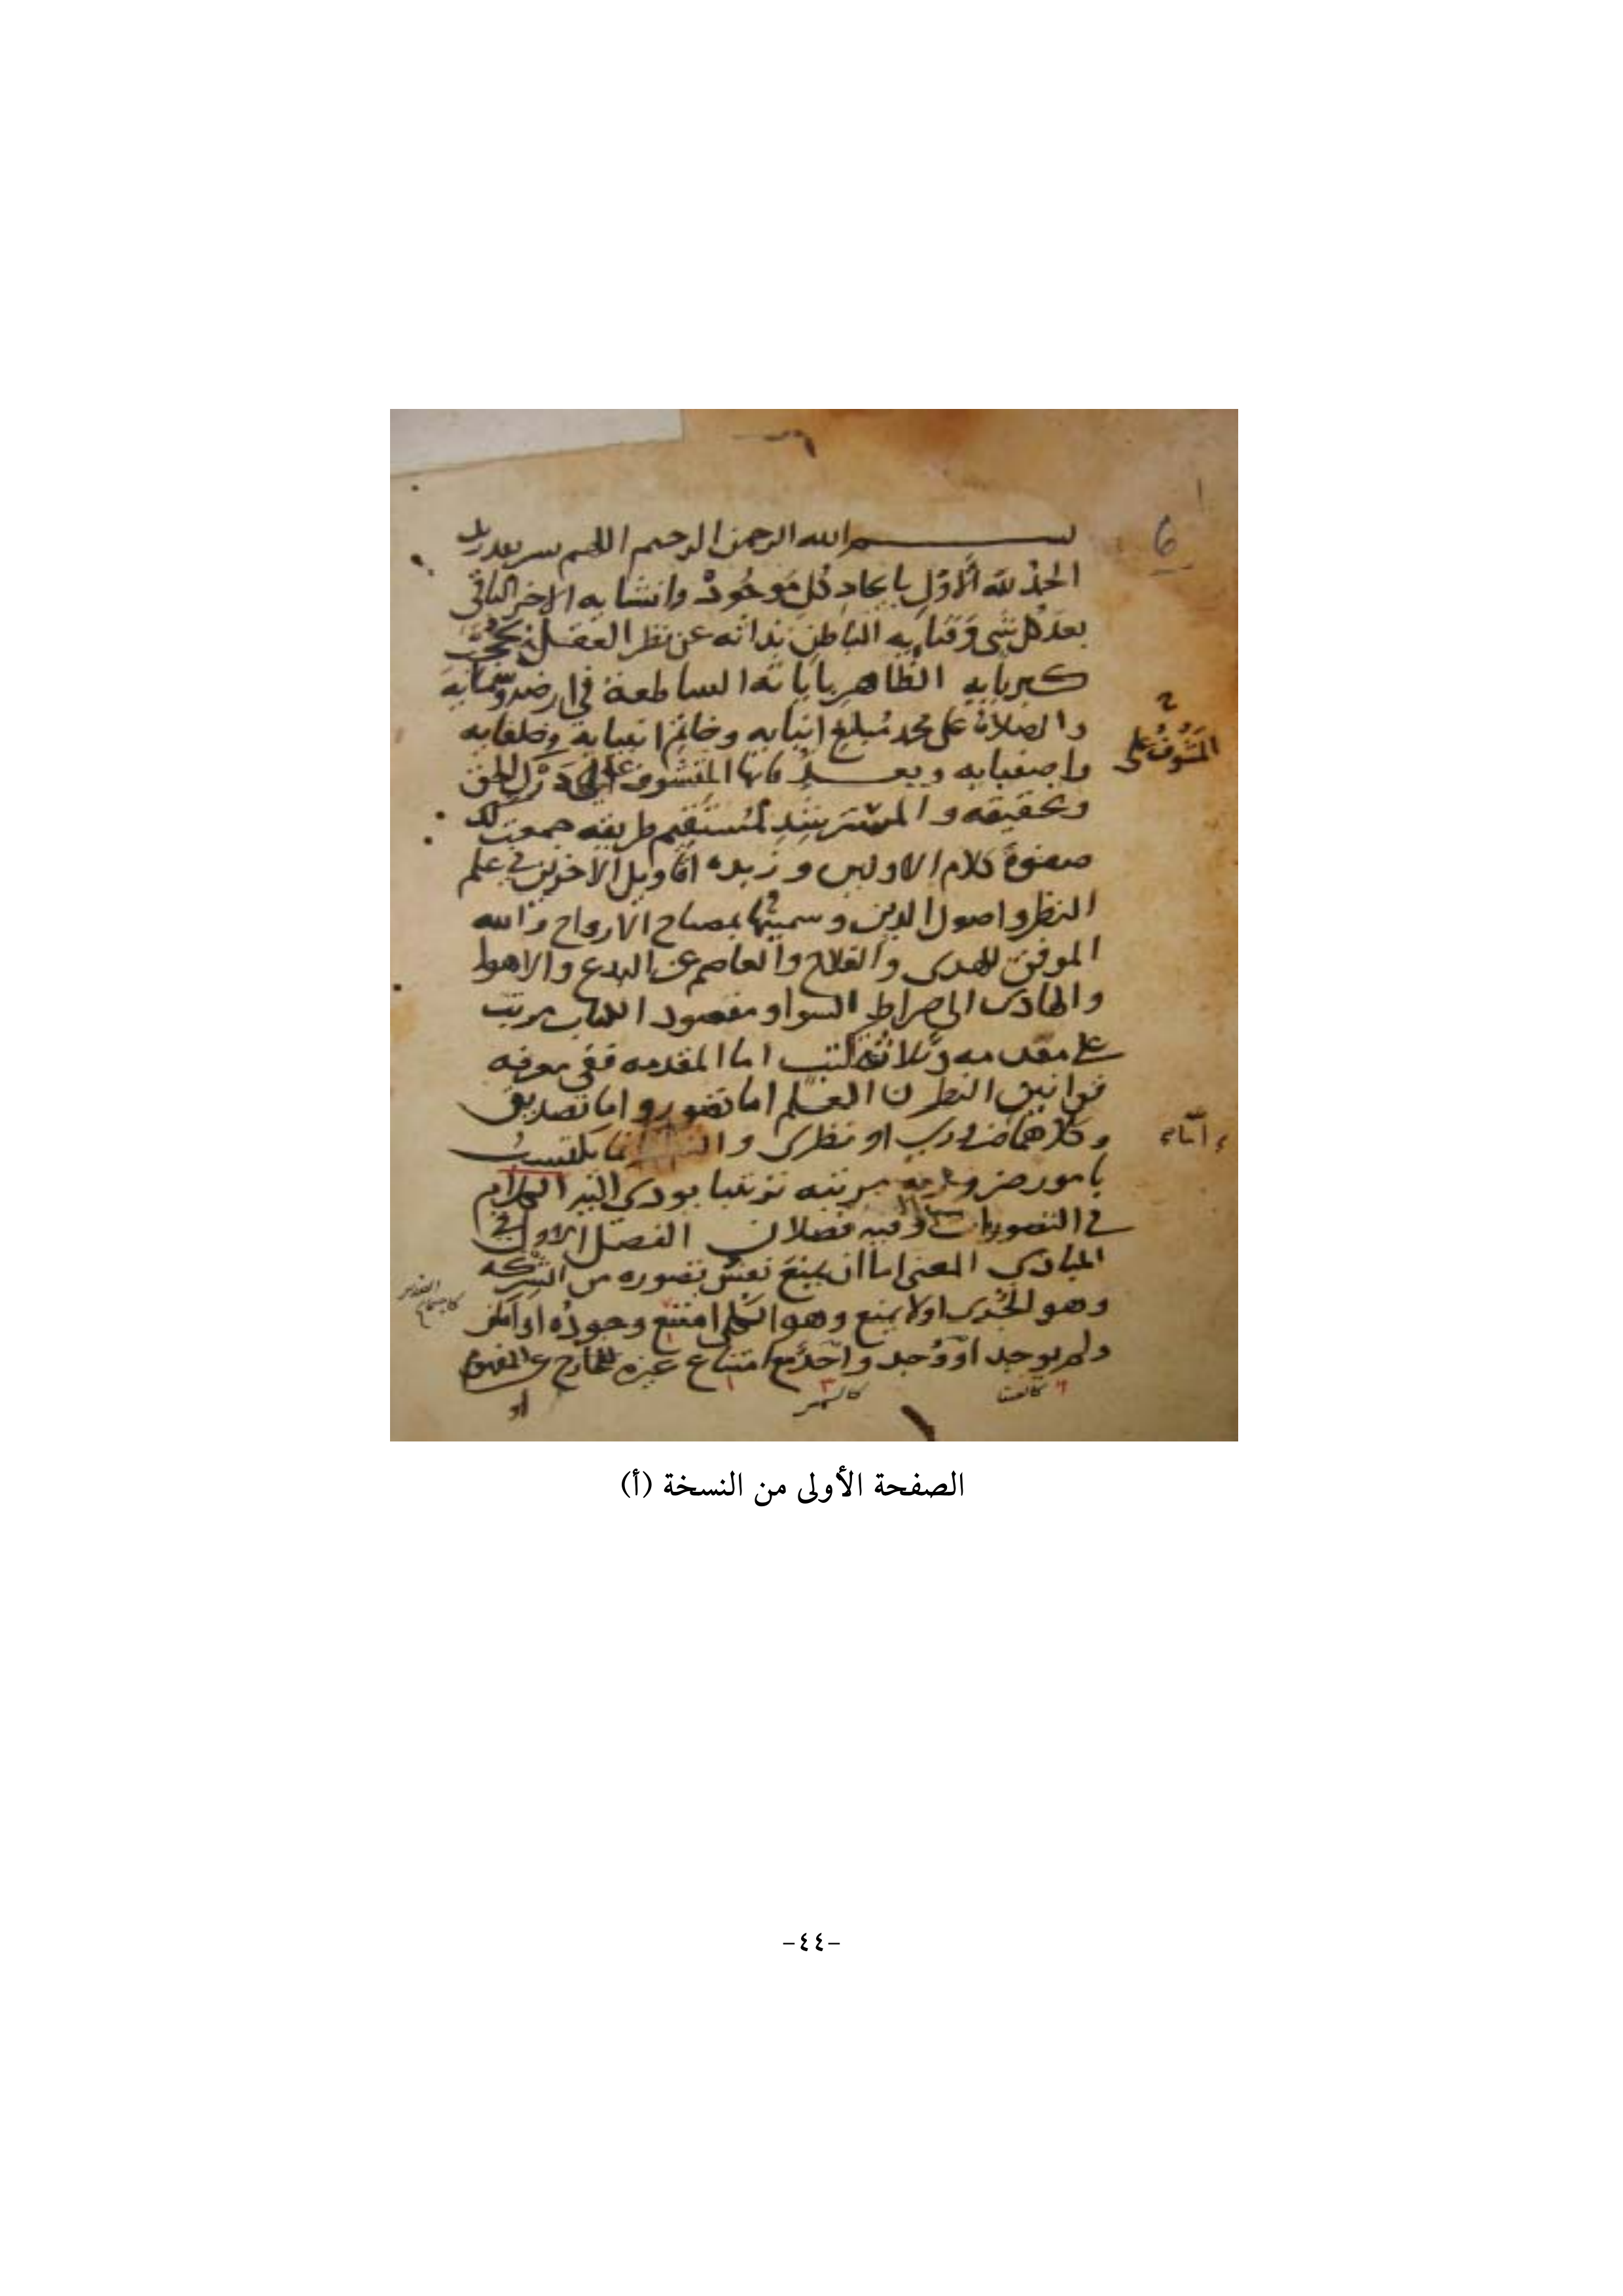 بسم الله الرحمن الرحيم اللهم يسر
الحمد لله الاول بايجاد كل موجود وانشايه الاخر الباقي
بعد كل شى وفنايه الباطن بذاته عن نظر العقل
كبريايه الظاهر باياته الساطعة في ارضه وسمايه
والصلاة على محمد مبلغ انبايه وخاتم انبيايه وخلفايه
واصفيايه وبعد المتشوف درك الحق
المتشوف على
وتحقيقه والمسترشد لمستقيم طريقه جمعت لك
صفوة كلام الاولين وزبده اقاويل الاخرين في علم
النظر واصول الدين وسميتها بمصباح الارواح والله
الموفق للهدى والفلاح والعاصم عن البدع والاهوا
والهادى الى صراط السوا ومقصود الكتاب مرتب
على مقدمه وثلاثة كتب اما المقدمه ففي معرفه
قوانين النظر العلم اما تصور واما تصديق
وكلاهما ضروري او نظرى يكتسب
بامور ضروريه مرتبه ترتيبا يودى اليه الكلام
في التصورات وفيه فصلان الفصل الاول في
المبادي المعنى اما ان يمنع نفس تصوره من الشركه
وهو الجزى اولا يمنع وهو الكلى امتنع وجوده او امكن
ولم يوجد او وجد واحد مع امتناع غيره للخارج عن المفهوم
كالعنقا
او
الصفحة الأولى من النسخة (أ)
-٤٤-